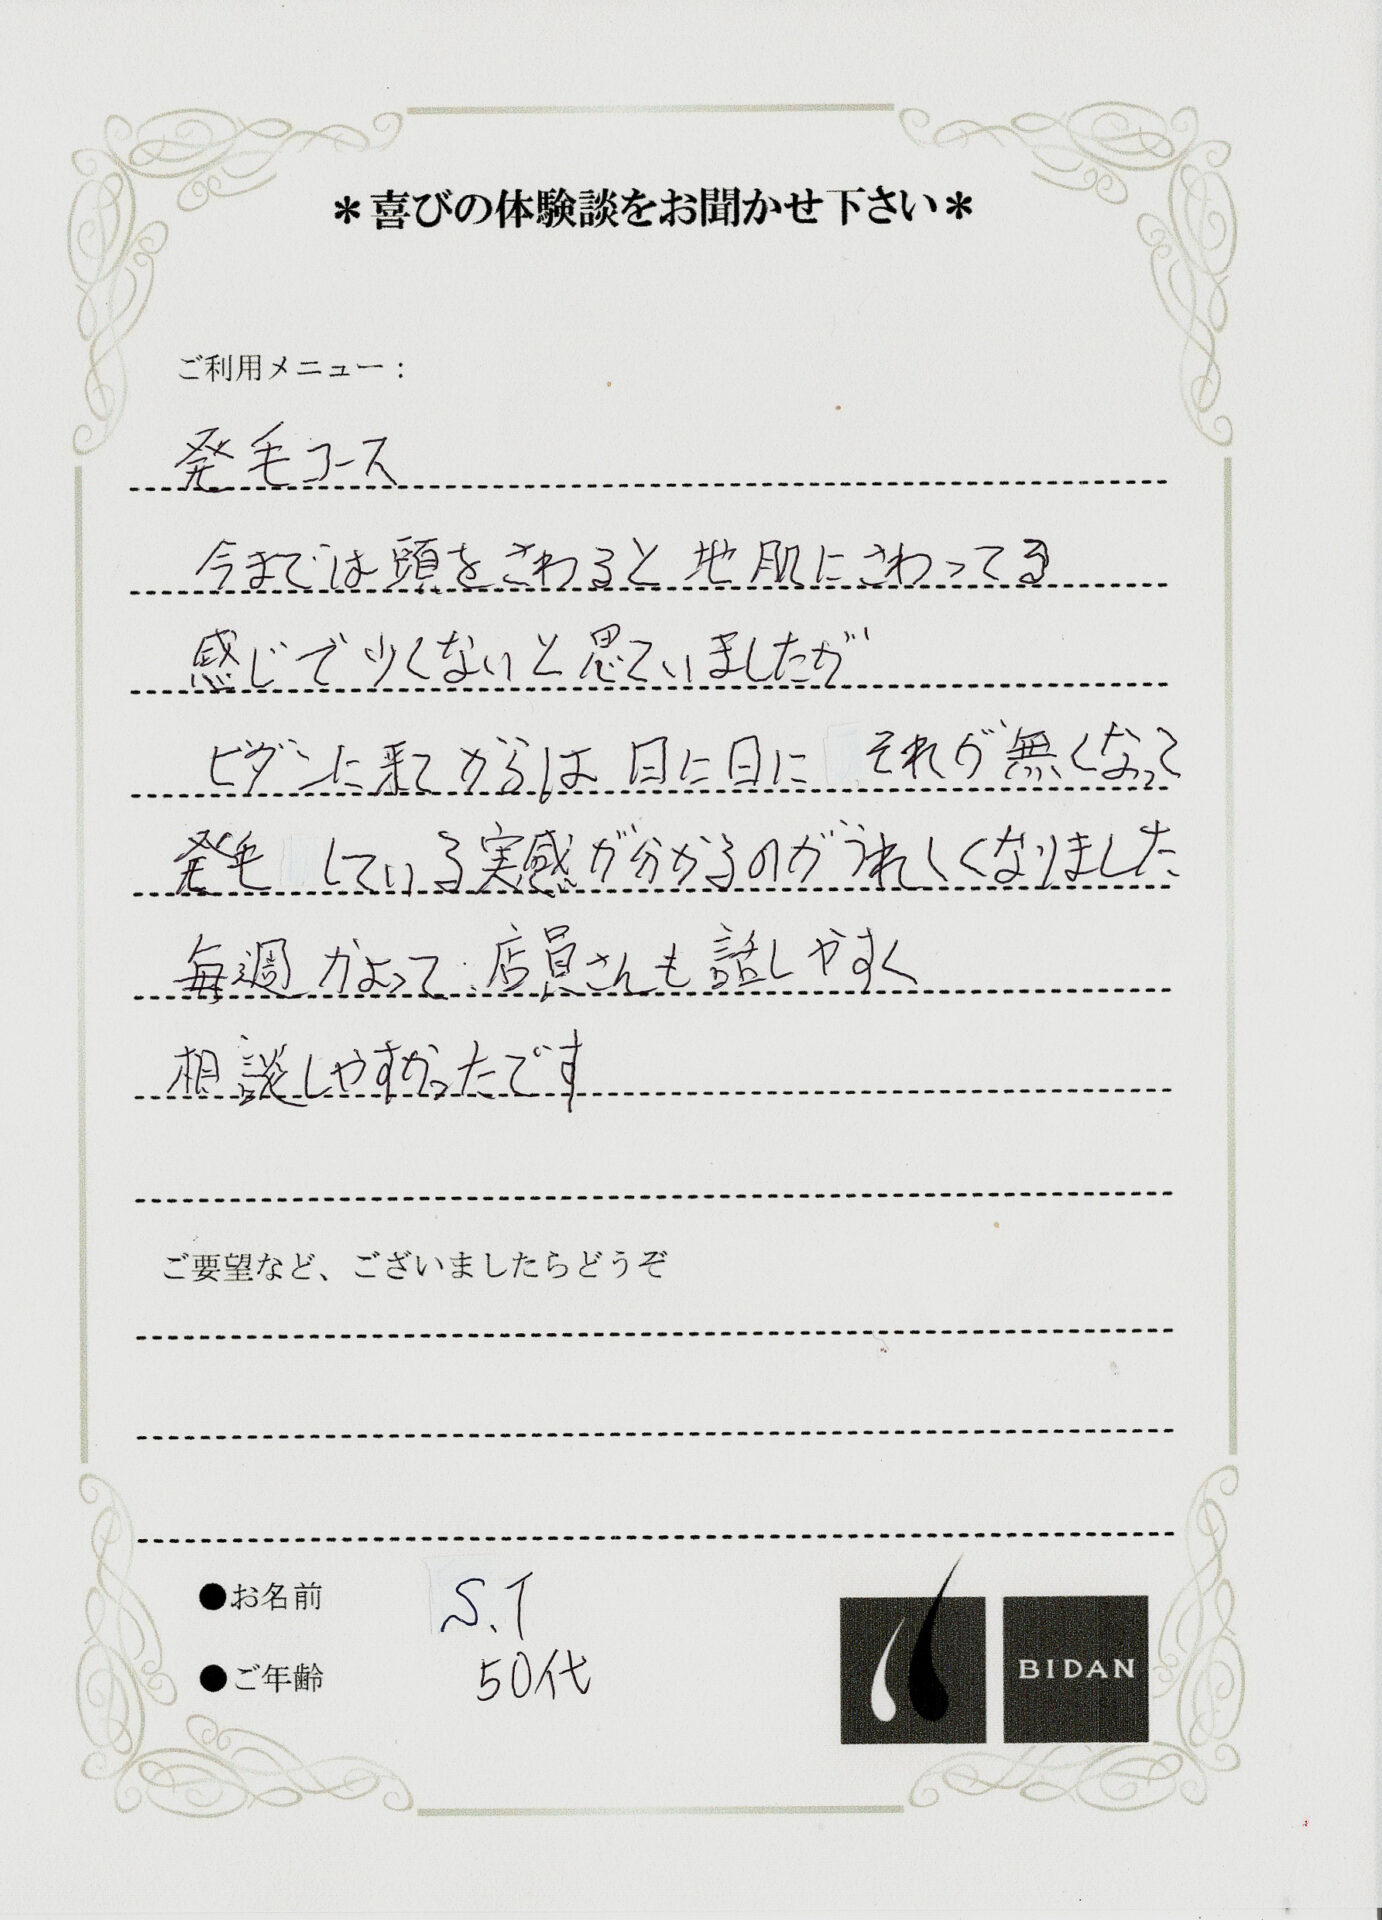 ＊喜びの体験談をお聞かせ下さい＊
ご利用メニュー：
発毛コース
今までは頭をさわると地肌にさわってる
感じで少くないと思ていましたが
ビダンに来てからは日に日にそれが無くなって
発毛している実感が分かるのがうれしくなりました
毎週かよって、店員さんも話しやすく
相談しやすかったです
ご要望など、ございましたらどうぞ
●お名前 S.T
●ご年齢 50代
BIDAN